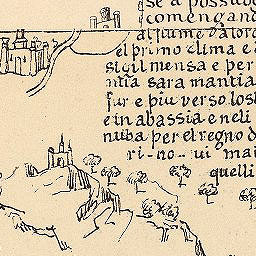 se a possudo
comengand
el primo clima e d
sigil mensa e per
ntia sara mantia
fur e piu verso los
e in abassia e neli
nuba per el regno d
ri-no-ui mai
quelli